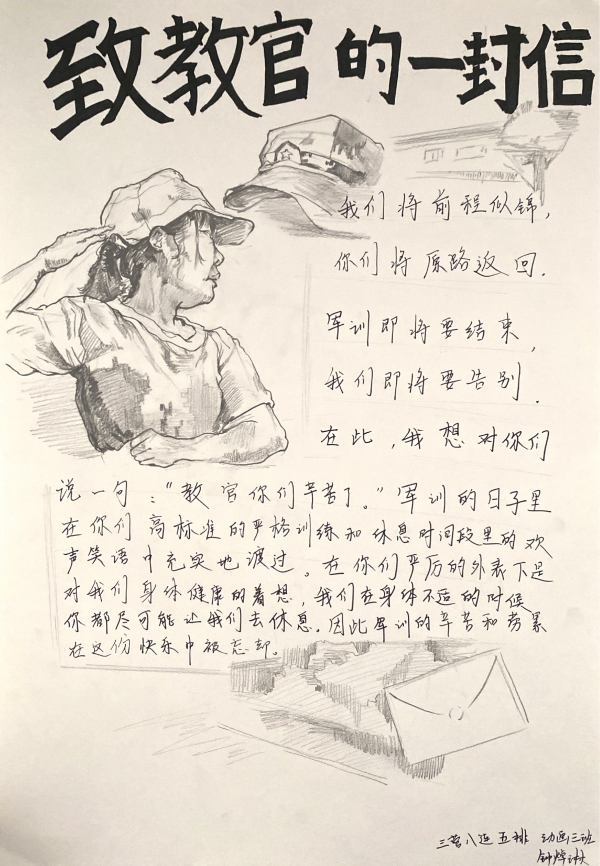 致教官的一封信
我们将前程似锦,
你们将原路返回.
军训即将要结束,
我们即将要告别.
在此,我想对你们
说一句:"教官你们辛苦了。"军训的日子里
在你们高标准的严格训练和休息时间段里的欢
声笑语中充实地渡过。在你们严厉的外表下是
对我们身体健康的着想,我们在身体不适的时候
你都尽可能让我们去休息.因此军训的辛苦和劳累
在这份快乐中被忘却.
三营八连五排 动画三班
钟烨